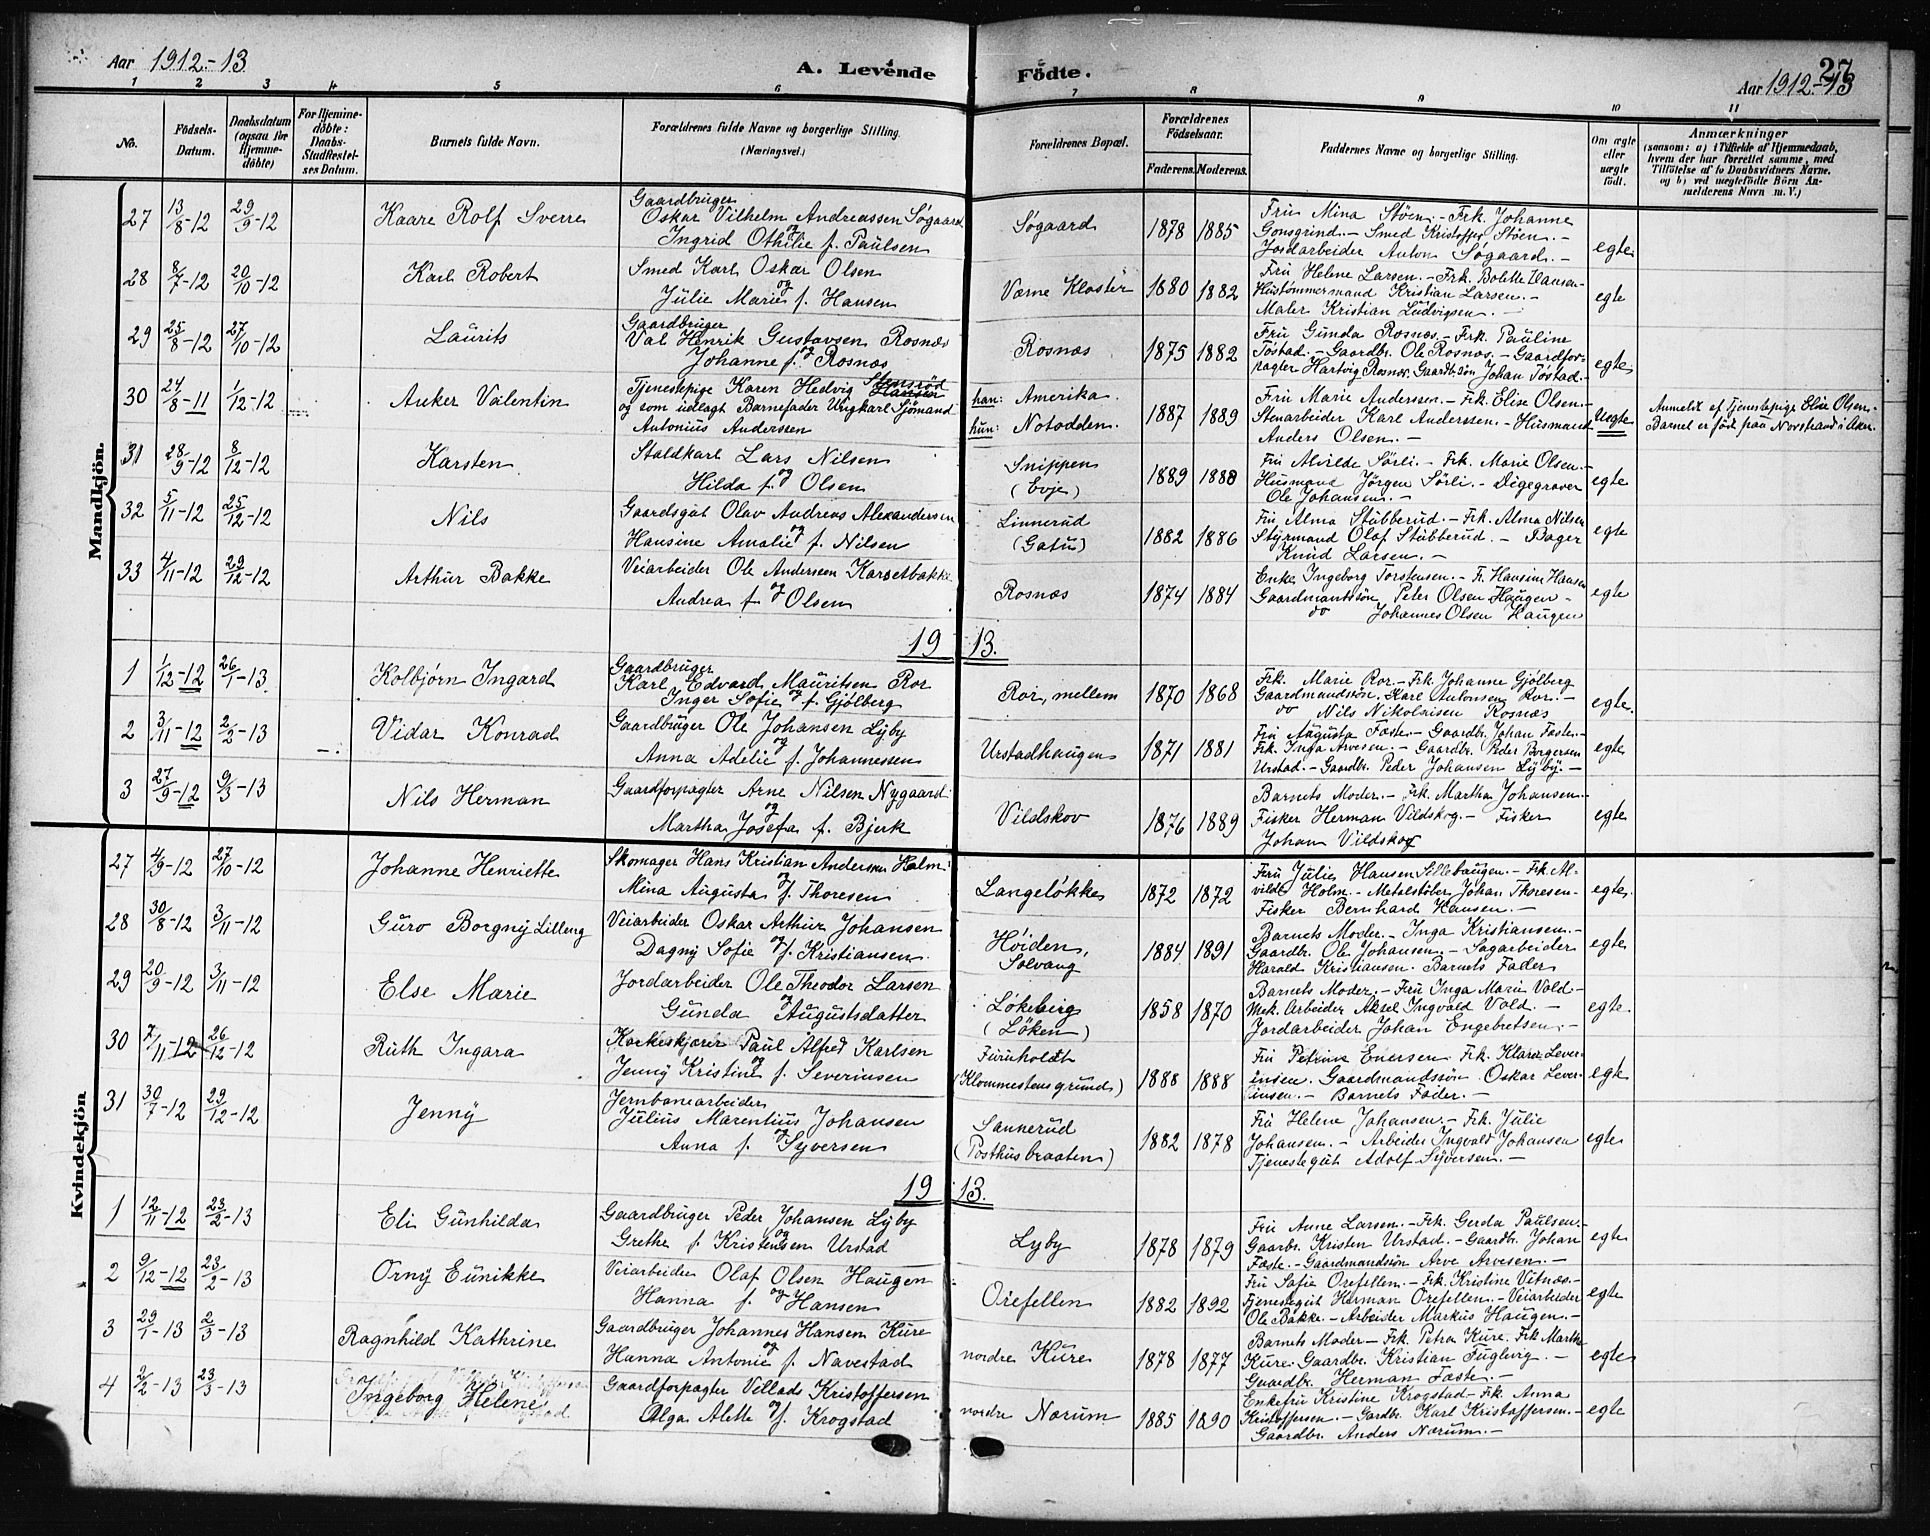 Aar 1912.-13
A. Levende Födte.
27
Aar 1912.-13
1 2 3 4 5 6 7 8 9 10 11
No.
Födsels-Datum.
Daabsdatum (ogsaa for Hjemmedöbte)
For Hjemmedöbte: Daabs-Stadfæstelses Datum.
Barnets fulde Navn.
Forældrenes fulde Navne og borgerlige Stilling. (Næringsvei.)
Forældrenes Bopæl.
Forældrenes Födselsaar.
Faderens. Moderens.
Faddernes Navne og borgerlige Stilling.
Om ægte eller uægte födt.
Anmærkninger
(saasom: a) i Tilfælde af Hjemmedaab, hvem der har forrettet samme, med Tilföielse af to Daabsvidners Navne. og b) ved uægtefödte Börn Anmelderens Navn m. V.)
Mandkjön.
27 13/8-12 29/9-12 Kaare Rolf Sverre
Gaardbruger
Oskar Vilhelm Andreassen Søgaard
og
Ingrid Othilie f. Paulsen
Søgaard 1878 1885
Fru Mina Støen. - Frk. Johanne
Gonsgrind. - Smed Kristoffer Støen. -
Jordarbeider Anton Søgaard. -
egte.
28 8/7-12 20/10-12 Karl Robert
Smed Karl Oskar Olsen
og
Julie Marie f. Hansen
Værne Kloster 1880 1882
Fru Helene Larsen. - Frk. Bolette Hansen-
Hustømmermand Kristian Larsen. -
Maler Kristian Ludvigsen. -
egte
29 25/8-12 27/10-12 Laurits
Gaardbruger
Val Henrik Gustavsen Rosnæs
og
Johanne f. Rosnæs
Rosnæs 1875 1882
Fru Gunda Rosnæs - Frk. Pauline
Tøstad. - Gaardbr. Ole Rosnæs. - Gaardfor-
pagter Hartvig Rosnæs. Gaardbr.søn Johan Tøstad.
egte
30 24/8-11 1/12-12 Anker Valentin
Tjenestepige Karen Hedvig Stensrød Hansen
og som udlagt Barnefader Ungkarl Sjömand
Antonius Anderssen
han: Amerika.
hun: Notodden. 1887 1889
Fru Marie Anderssen. - Frk. Elise Olsen. -
Stenarbeider Karl Anderssen. - Husmand
Anders Olsen. -
Uegte
Anmeldt af Tjenestepige Elise Olsen.
Barnet er født paa Norstrand i Aker.
31 28/9-12 8/12-12 Karsten
Staldkarl Lars Nilsen
og
Hilda f. Olsen
Snippen
(Evje) 1889 1888
Fru Alvilde Sørli. - Frk. Marie Olsen. -
Husmand Jørgen Sørli. - Digegraver
Ole Johansen. -
egte
32 5/11-12 25/12-12 Nils
Gaardsgut Olav Andreas Alexandersen
og
Hansine Amalie f. Nilsen
Linnerud
(Gatu) 1882 1886
Fru Alma Stubberud. - Frk. Alma Nilsen
Styrmand Olaf Stubberud. - Bager
Knud Larsen. -
egte
33 4/11-12 29/12-12 Arthur Bakke
Veiarbeider Ole Andersen Karsetbakke
og
Andrea f. Olsen
Rosnæs 1874 1884
Enke Ingeborg Torstensen. - Fr. Hansine Hansen
Gaardmandssön Peter Olsen Haugen -
do Johannes Olsen Haugen
egte
19 13.
1 1/12-12 26/1-13 Kolbjørn Ingard
Gaardbruger
Karl Edvard Mauritsen Ror
og
Inger Sofie f. Gjölberg
Ror, mellem 1870 1868
Frk. Marie Ror. - Frk Johanne Gjölberg
Gaardmandssön. Karl Antonsen Ror. -
do Nils Nikolaisen Rosnæs
egte.
2 3/11-12 2/2-13 Vidar Konrad
Gaardbruger Ole Johansen Lyby
og
Anna Adelie f. Johannessen
Urstadhaugen 1871 1881
Fru Augusta Fæste. - Gaardbr. Johan Fæste. -
Frk. Inga Arvesen. - Gaardbr. Peder Borgersen
Urstad. - Gaardbr. Peder Johansen Lyby. -
egte
3 27/9-12 9/3-13 Nils Herman
Gaardforpagter Arne Nilsen Nygaard
og
Martha Josefa f. Bjerk
Vildskov 1876 1889
Barnets Moder. - Frk. Martha Johansen.
Fisker Herman Vildskog. - Fisker
Johan Vildskog
egte
Kvindekjön
27 4/9-12 27/10-12 Johanne Henriette
Skomager Hans Kristian Andersen Holm
og
Mina Augusta f. Thoresen
Langeløkke 1872 1872
Fru Julie Hansen Sillebaugen. - Frk. Al-
vilde Holm. - Metalstøber Johan Thoresen -
Fisker Bernhard Hansen. -
egte.
28 30/8-12 3/11-12 Guro Borgny Lilleng
Veiarbeider Oskar Arthur Johansen
og
Dagny Sofie f. Kristiansen.
Høiden,
Solvang 1884 1891
Barnets Moder. - Inga Kristiansen. -
Gaardbr. Ole Johansen. - Sagarbeider
Harald Kristiansen. Barnets Fader
egte
29 20/9-12 3/11-12 Else Marie
Jordarbeider Ole Theodor Larsen
og
Gunda Augustsdatter
Løkeberg
(Løken) 1858 1870
Barnets Moder. - Fru Inga Marie Vold -
Mek. Arbeider Aksel Ingvald Vold. -
Jordarbeider Johan Engebretsen. -
egte
30 7/11-12 26/12-12 Ruth Ingara
Korkeskjærer Paul Alfred Karlsen
og
Jenny Kristine f. Severinsen
Furuholdt
(Klommestensgrund) 1888 1888
Fru Petrine Enersen. Frk. Klara Sever-
insen. Gaardmandssön Oskar Sever-
insen. - Barnets Fader. -
egte
31 30/7-12 29/12-12 Jenny
Jernbanearbeider
Julius Marentius Johansen
og
Anna f. Syversen
Sannerud
(Posthusbraaten) 1882 1878
Fru Helene Johansen. - Frk. Julie
Johansen. - Arbeider Ingvald Johansen
Tjenestegut Adolf Syversen. -
egte
19 13.
1 12/11-12 23/2-13 Eli Gunhilda
Gaardbruger Peder Johansen Lyby
og
Grethe f. Kristensen Urstad
Lyby 1878 1879
Fru Anne Larsen. - Frk. Gerda Paulsen. -
Gaarbr. Kristen Urstad. - Gaardb. Johan
Fæste. - Gaardmandssön Arve Arvesen. -
egte
2 9/12-12 23/2-13 Orny Eunikke
Veiarbeider Olaf Olsen Haugen
og
Hanna f. Hansen
Orefellen 1882 1892
Fru Sofie Orefellen. - Frk. Kristine Vitnæs. -
Tjenestegut Herman Orefellen. - Veiarbeider
Ole Bakke. - Arbeider Markus Haugen. -
egte
3 29/1-13 2/3-13 Ragnhild Kathrine
Gaardbruger Johannes Hansen Kure
og
Hanna Antonie f. Navestad
nordre Kure 1878 1877
Barnets Moder - Frk. Petra Kure. Frk. Marthe
Kure. Gaardbr. Kristian Fuglevig. -
Gaardbr. Herman Fæste. -
egte
4 2/2-13 23/3-13 Ingeborg Helene
Gaardforpagter Vellads Kristoffersen
og
Olga Alette f. Krogstad
nordre Nærum 1885 1890
Enkefru Kristine Krogstad - Frk. Anna
Kristoffersen. - Gardbr. Karl Kristoffersen. -
Gaardbr. Anders Nærum. -
egte